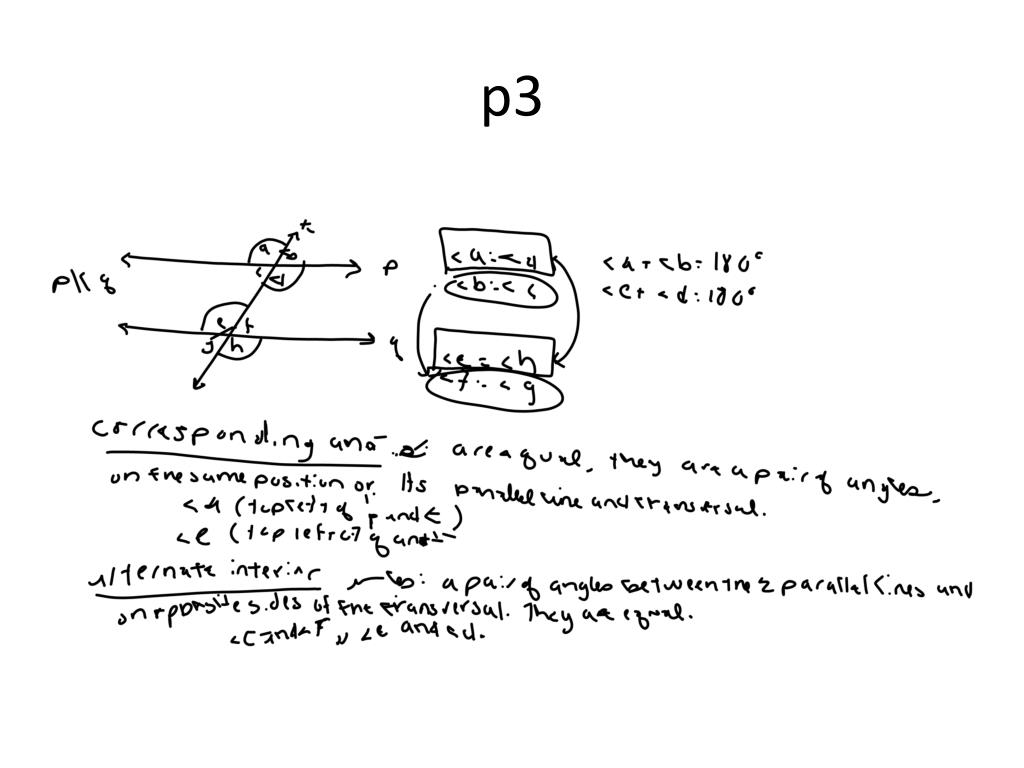 p3
t
a b
p
c d
p || q
e f
q
g h
<a = <d
<b = <c
<e = <h
<f = <g
<a + <b = 180°
<c + <d = 180°
corresponding : are equal, they are a pair of angles,
on the same position or its parallel line and transversal.
<a (top left of p and t)
<e (top left of q and t
alternate interior : a pair of angles between the 2 parallel lines and
on opposite sides of the transversal. They are equal.
<c and <f , <e and <d.